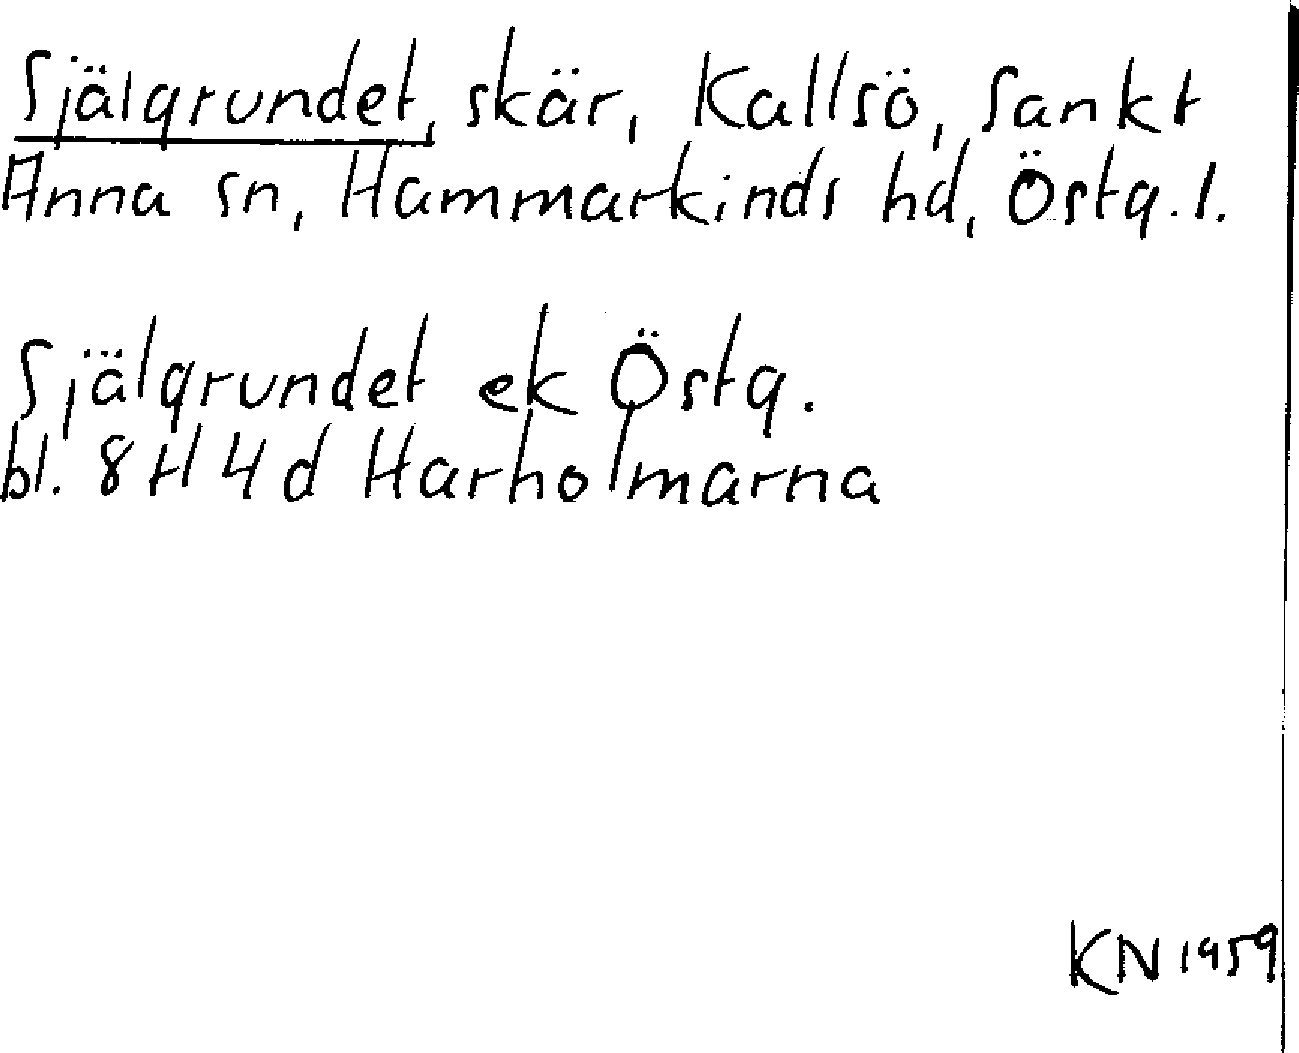 Själgrundet, skär, Kallsö, Sankt
Anna sn, Hammarkinds hd, Östg. l.
Själgrundet ek Östg.
bl. 8H4d Harholmarna
KN 1959